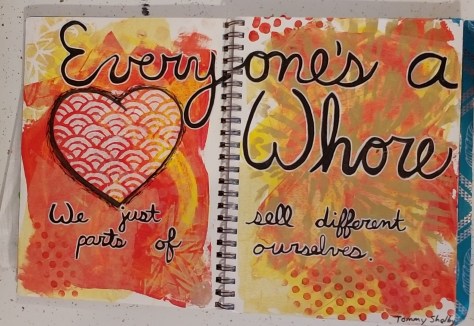 Everyone's a
Whore
We just sell different
parts of ourselves.
Tommy Shelby